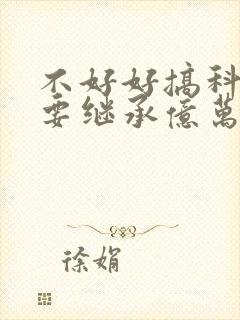 不好好搞科
要继承億萬
徐娟